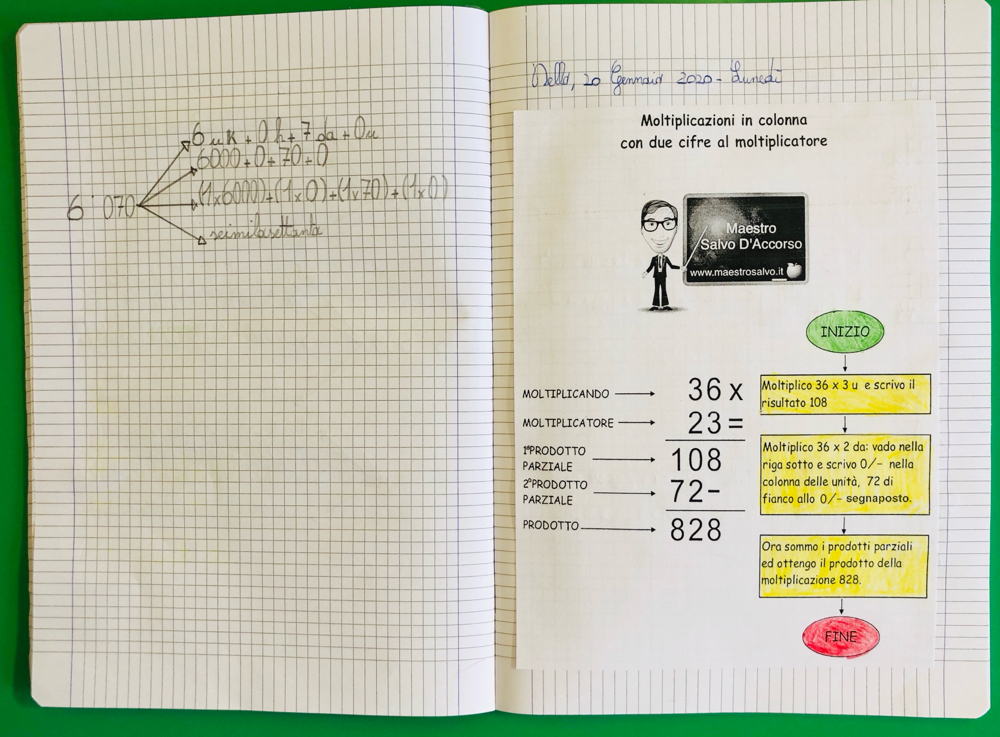 6 uk + 0 h + 7 da + 0u
6000 + 0 + 70 + 0
6˙070
(1x6000)+(1x0)+(1x70)+(1x0)
seimilasettanta
20 Gennaio 2020 - Lunedì
Moltiplicazioni in colonna
con due cifre al moltiplicatore
Maestro
Salvo D'Accorso
www.maestrosalvo.it
INIZIO
MOLTIPLICANDO
36 x
MOLTIPLICATORE
23 =
1°PRODOTTO
PARZIALE
108
2°PRODOTTO
PARZIALE
72-
PRODOTTO
828
Moltiplico 36 x 3 u e scrivo il
risultato 108
Moltiplico 36 x 2 da: vado nella
riga sotto e scrivo 0/- nella
colonna delle unità, 72 di
fianco allo 0/- segnaposto.
Ora sommo i prodotti parziali
ed ottengo il prodotto della
moltiplicazione 828.
FINE